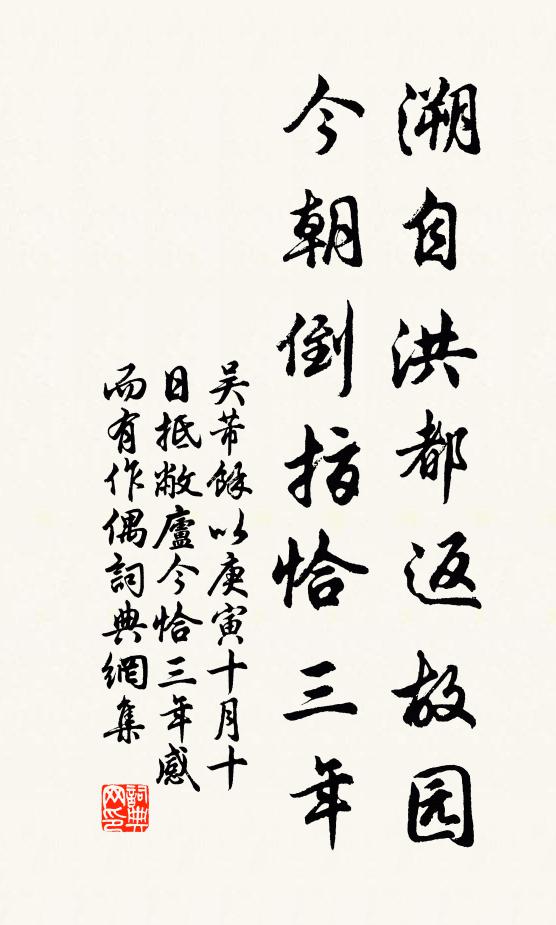 溯自洪都返故园
今朝倒指恰三年
吴芾馀以庚寅十月十
日抵敝廬今恰三年感
而有作偶詞典網集
詞典网印